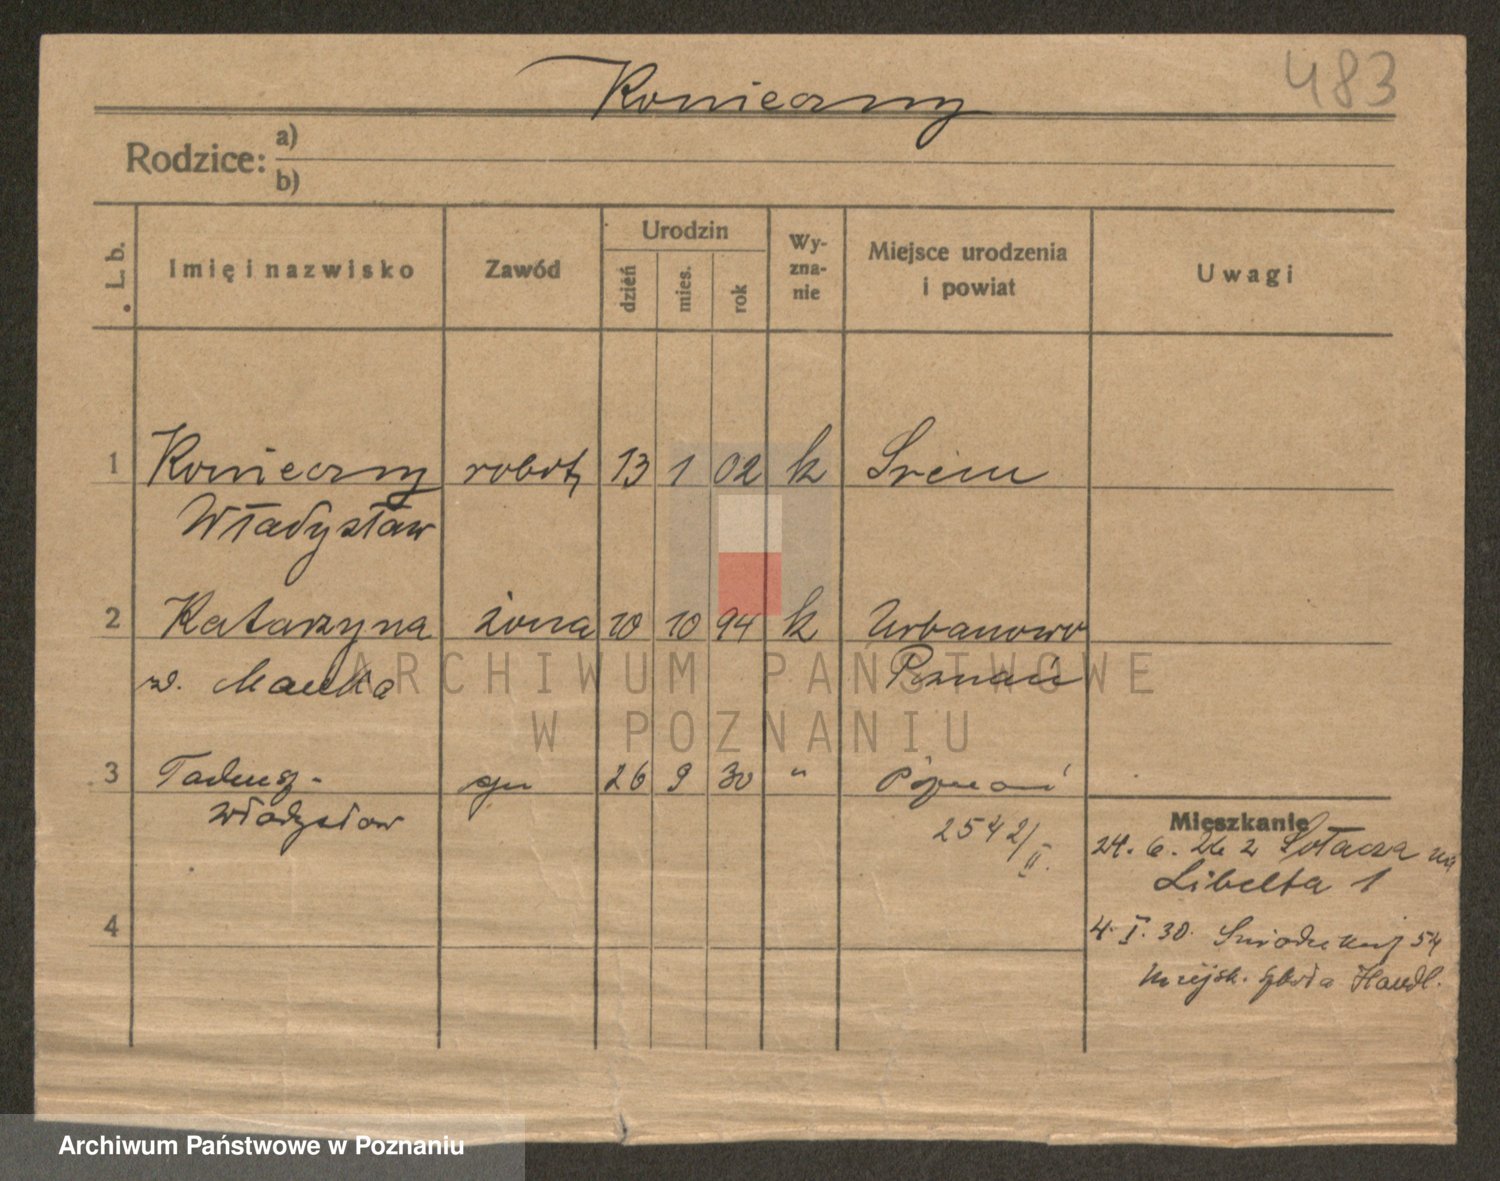 483
Konieczny
Rodzice: a)
b)
L. b.
Imię i nazwisko
Zawód
Urodzin
dzień
mies.
rok
Wy-
zna-
nie
Miejsce urodzenia
i powiat
Uwagi
1 Konieczny robotn 13 1 02 k Śrem
Władysław
2 Katarzyna żona 10 10 94 k Urbanowo
z. Poznań
3 Tadeusz- syn 26 9 30 " Poznań
Władysław
2542/II.
Mieszkanie
24. 6. 26 z Sołacza na
Libelta 1
4
4. I. 30. Śniadeckich 54
Miejsk. Szkoła Handl.
ARCHIWUM PAŃSTWOWE
W POZNANIU
Archiwum Państwowe w Poznaniu